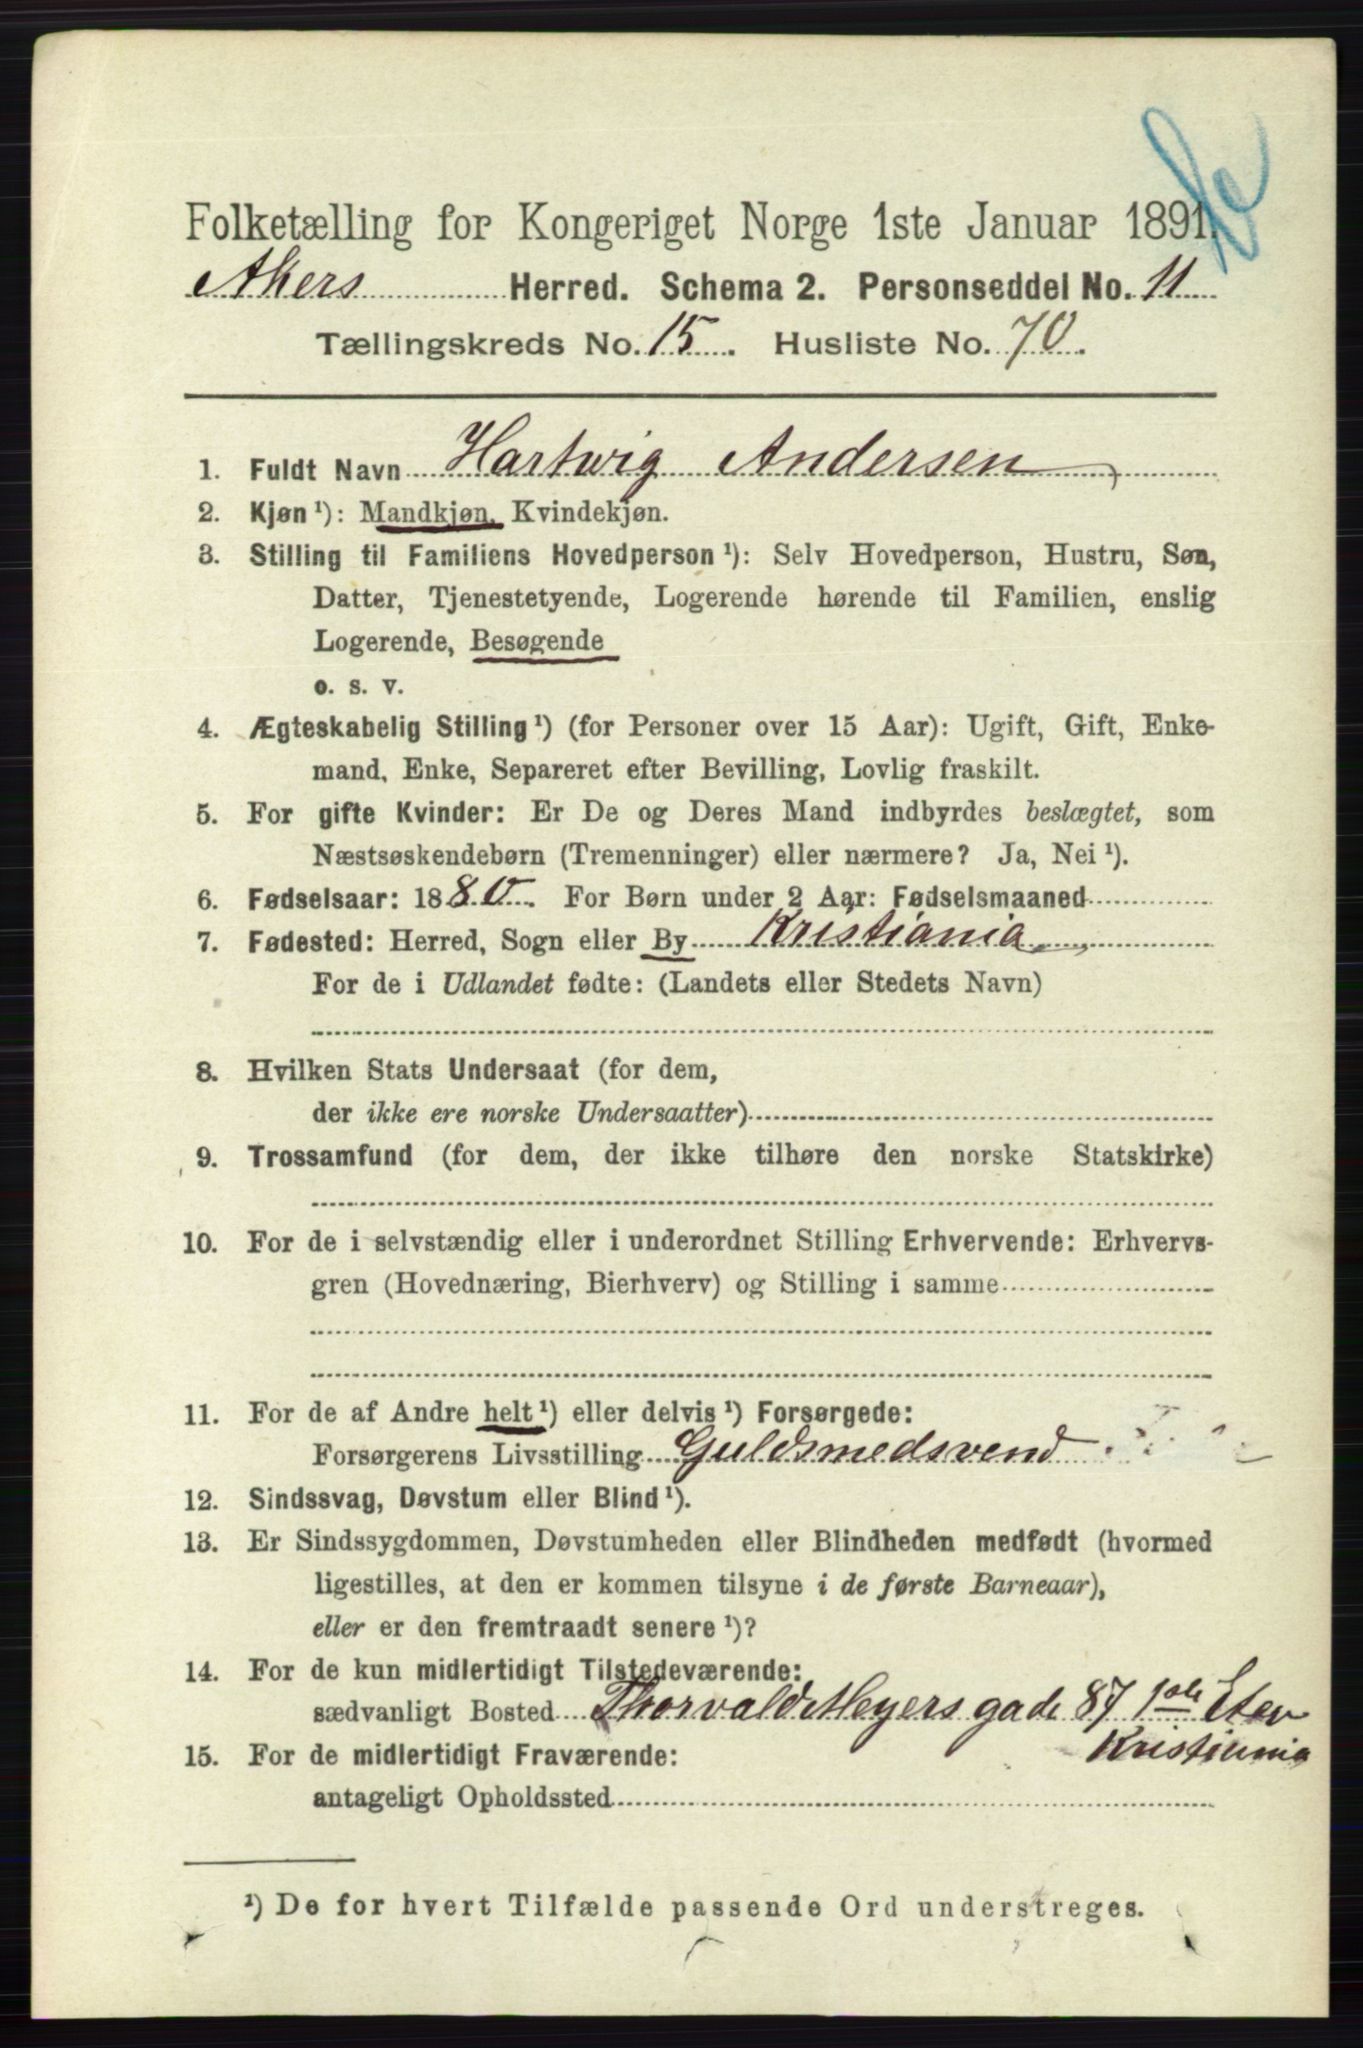 Folketælling for Kongeriget Norge 1ste Januar 1891.
Akers Herred. Schema 2. Personseddel No. 11
Tællingskreds No. 15. Husliste No. 70.
1. Fuldt Navn Hartwig Andersen,
2. Kjøn ¹): Mandkjøn, Kvindekjøn.
3. Stilling til Familiens Hovedperson ¹): Selv Hovedperson, Hustru, Søn,
Datter, Tjenestetyende, Logerende hørende til Familien, enslig
Logerende, Besøgende
o. s. v.
4. Ægteskabelig Stilling ¹) (for Personer over 15 Aar): Ugift, Gift, Enke-
mand, Enke, Separeret efter Bevilling, Lovlig fraskilt.
5. For gifte Kvinder: Er De og Deres Mand indbyrdes beslægtet, som
Næstsøskendebørn (Tremenninger) eller nærmere? Ja, Nei ¹).
6. Fødselsaar: 1880. For Børn under 2 Aar: Fødselsmaaned
7. Fødested: Herred, Sogn eller By Kristiania
For de i Udlandet fødte: (Landets eller Stedets Navn)
8. Hvilken Stats Undersaat (for dem,
der ikke ere norske Undersaatter)
9. Trossamfund (for dem, der ikke tilhøre den norske Statskirke)
10. For de i selvstændig eller i underordnet Stilling Erhvervende: Erhvervs-
gren (Hovednæring, Bierhverv) og Stilling i samme
11. For de af Andre helt ¹) eller delvis ¹) Forsørgede:
Forsørgerens Livsstilling Guldsmedsvend
12. Sindssvag, Døvstum eller Blind ¹).
13. Er Sindssygdommen, Døvstumheden eller Blindheden medfødt (hvormed
ligestilles, at den er kommen tilsyne i de første Barneaar),
eller er den fremtraadt senere ¹)?
14. For de kun midlertidigt Tilstedeværende:
sædvanligt Bosted Thorvald Meyers gade 87 1ste Etev
Kristiania
15. For de midlertidigt Fraværende:
antageligt Opholdssted
¹) De for hvert Tilfælde passende Ord understreges.